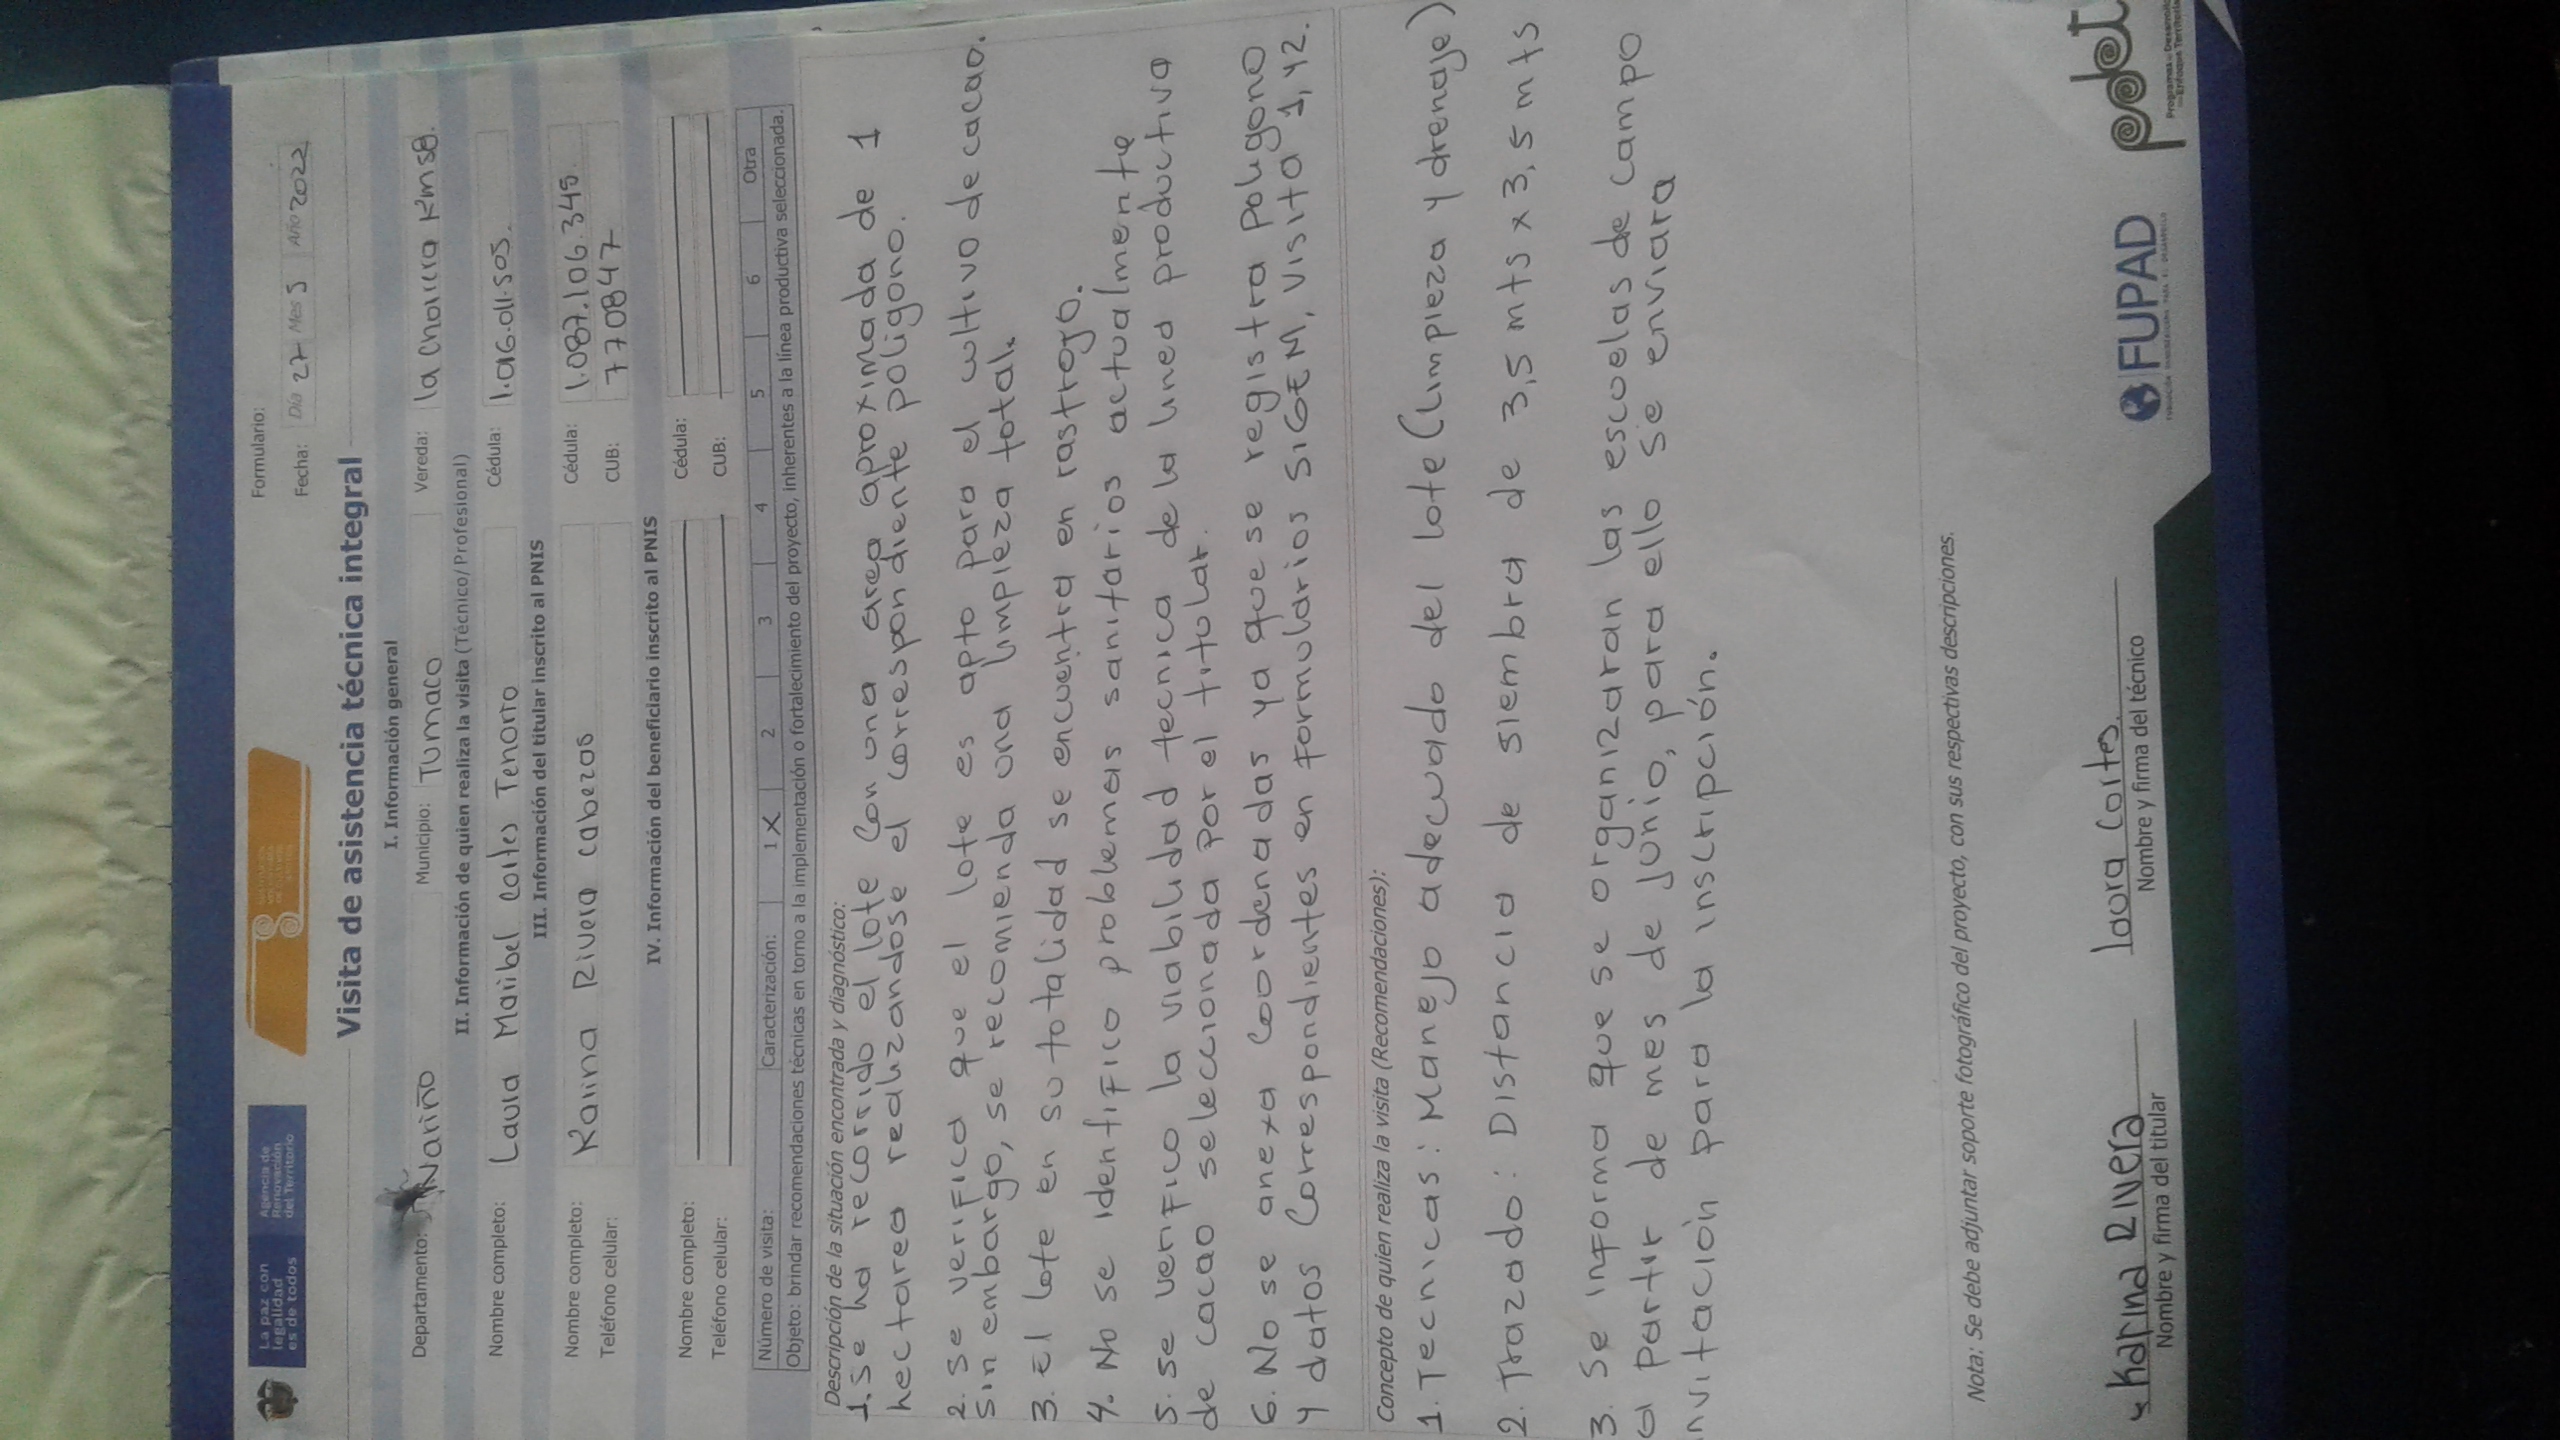 La paz con
legalidad
es de todos
Agencia de
Renovación
del Territorio
Formulario:
Fecha: Día 27 Mes 5 Año 2022
Visita de asistencia técnica integral
I. Información general
Departamento: Nariño Municipio: Tumaco Vereda: la Chorrera Km 58.
II. Información de quien realiza la visita (Técnico/Profesional)
Nombre completo: Laura Maribel Cortes Tenorio Cédula:
III. Información del titular inscrito al PNIS
Nombre completo: Karina Rivera Cabezas Cédula: 1.087.106.345.
Teléfono celular: CUB: 770847
IV. Información del beneficiario inscrito al PNIS
Nombre completo: Cédula:
Teléfono celular: CUB:
Número de visita: Caracterización: 1 X 2 3 4 5 6 Otra
Objeto: brindar recomendaciones técnicas en torno a la implementación o fortalecimiento del proyecto, inherentes a la línea productiva seleccionada.
Descripción de la situación encontrada y diagnóstico:
1. Se ha recorrido el lote con una area aproximada de 1
hectarea realizandose el correspondiente poligono.
2. Se verifico que el lote es apto para el cultivo de cacao.
sin embargo, se recomienda una limpieza total.
3. El lote en su totalidad se encuentra en rastrojo.
4. No se identifico problemas sanitarios actualmente
5. Se verifico la viabilidad tecnica de la linea productiva
de cacao seleccionada por el titular.
6. No se anexa coordenadas ya que se registra poligono
y datos correspondientes en formularios SIGEM, visita 1, y2.
Concepto de quien realiza la visita (Recomendaciones):
1. Tecnicas: Manejo adecuado del lote (Limpieza y drenaje)
2. Trazado: Distancia de siembra de 3,5 mts x 3,5 mts
3. Se informa que se organizaran las escuelas de campo
a partir de mes de junio, para ello se enviara
invitación para la inscripción.
Nota: Se debe adjuntar soporte fotográfico del proyecto, con sus respectivas descripciones.
x Karina Rivera laura Cortes.
Nombre y firma del titular Nombre y firma del técnico
FUPAD
pdet
Programas de Desarrollo
con Enfoque Territorial